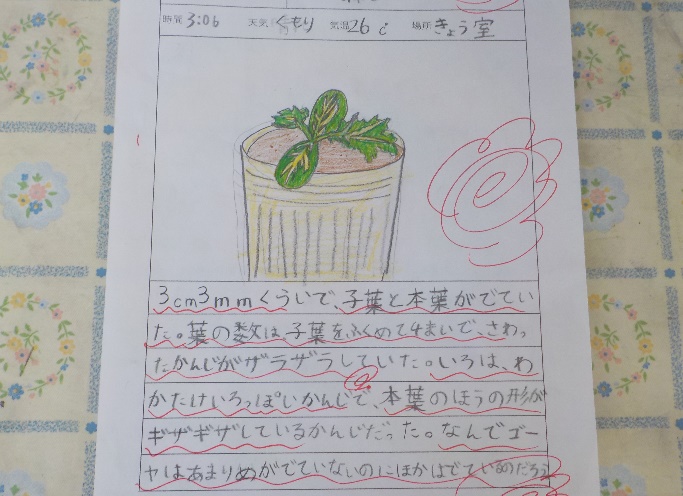 時間 3:06 天気 くもり 気温 26℃ 場所 きょう室
3cm3mmくらいで、子葉と本葉がでてい
た。葉の数は子葉をふくめて4まいで、さわっ
たかんじがザラザラしていた。いろは、わ
かたけいろっぽいかんじで、本葉のほうの形が
ギザギザしているかんじだった。なんでゴー
ヤはあまりめがでていないのにほかはでているのだろう